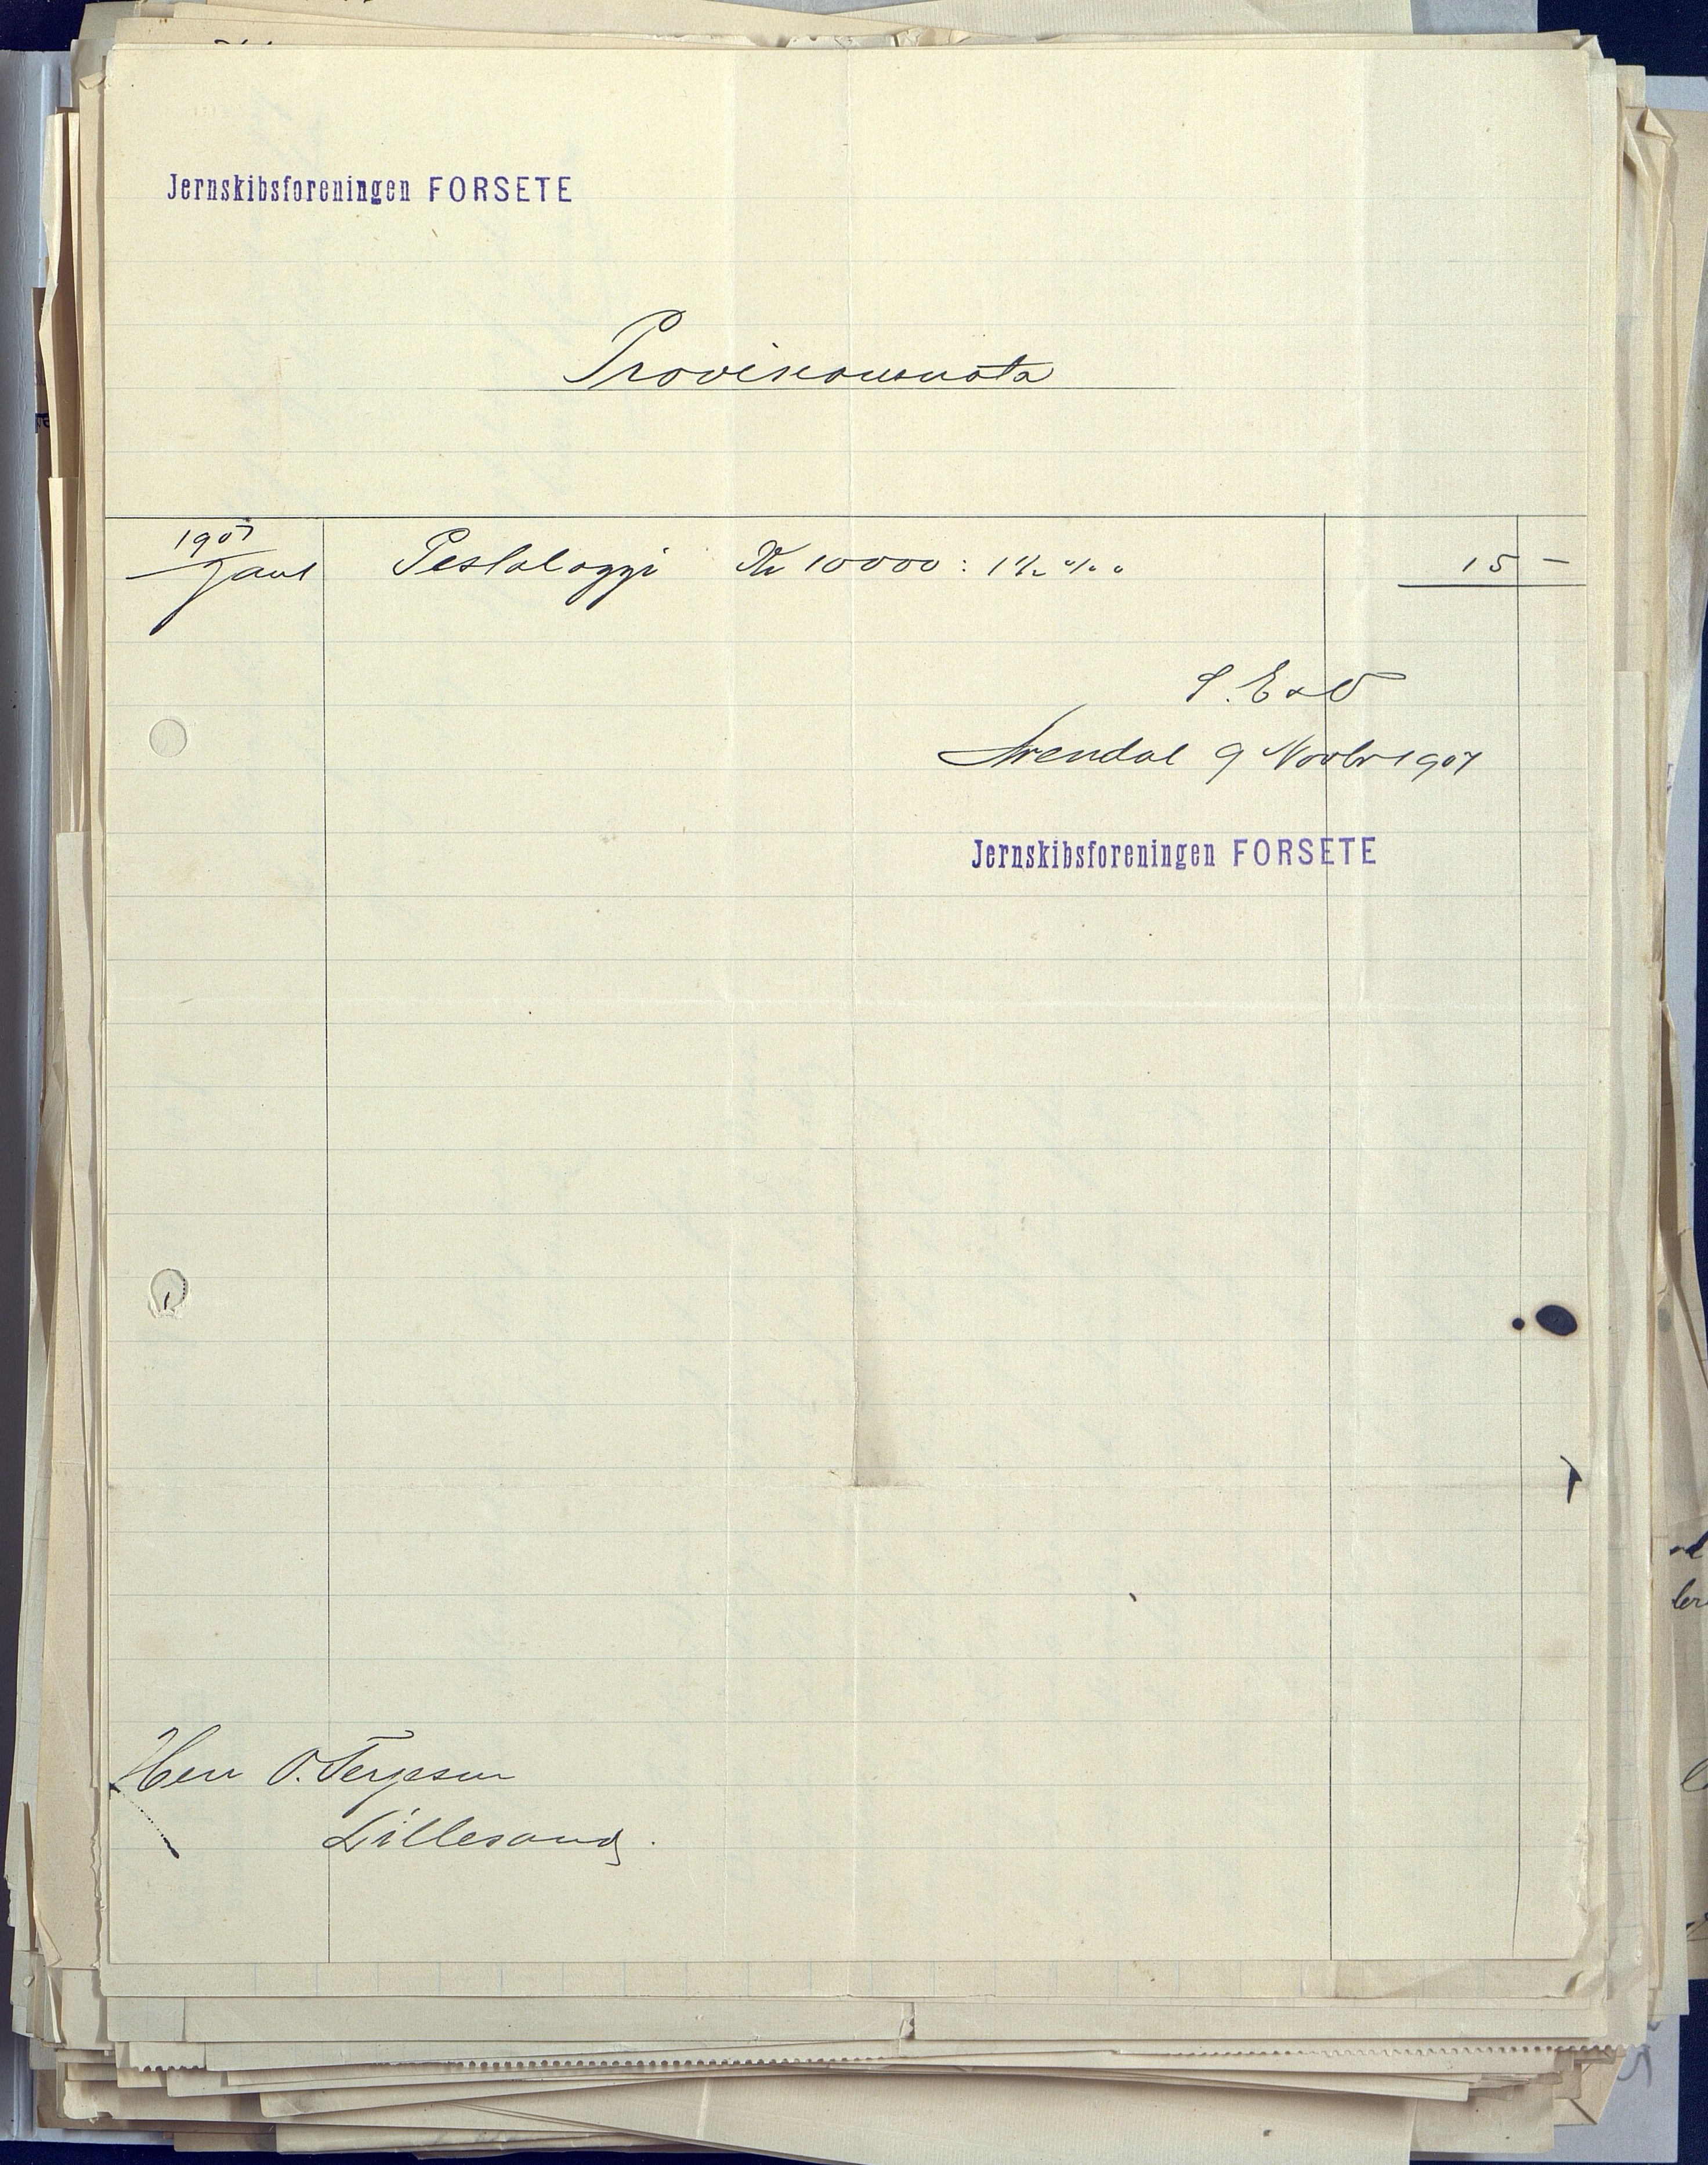 Jernskibsforeningen FORSETE
Provisionsnota
1907
Jan1 Pestalozzi Kr 10000: 1½ o/oo 15 –
S. E & O
Arendal 9 Novbr 1907
Jernskibsforeningen FORSETE
Herr O. Terjesen
Lillesand.